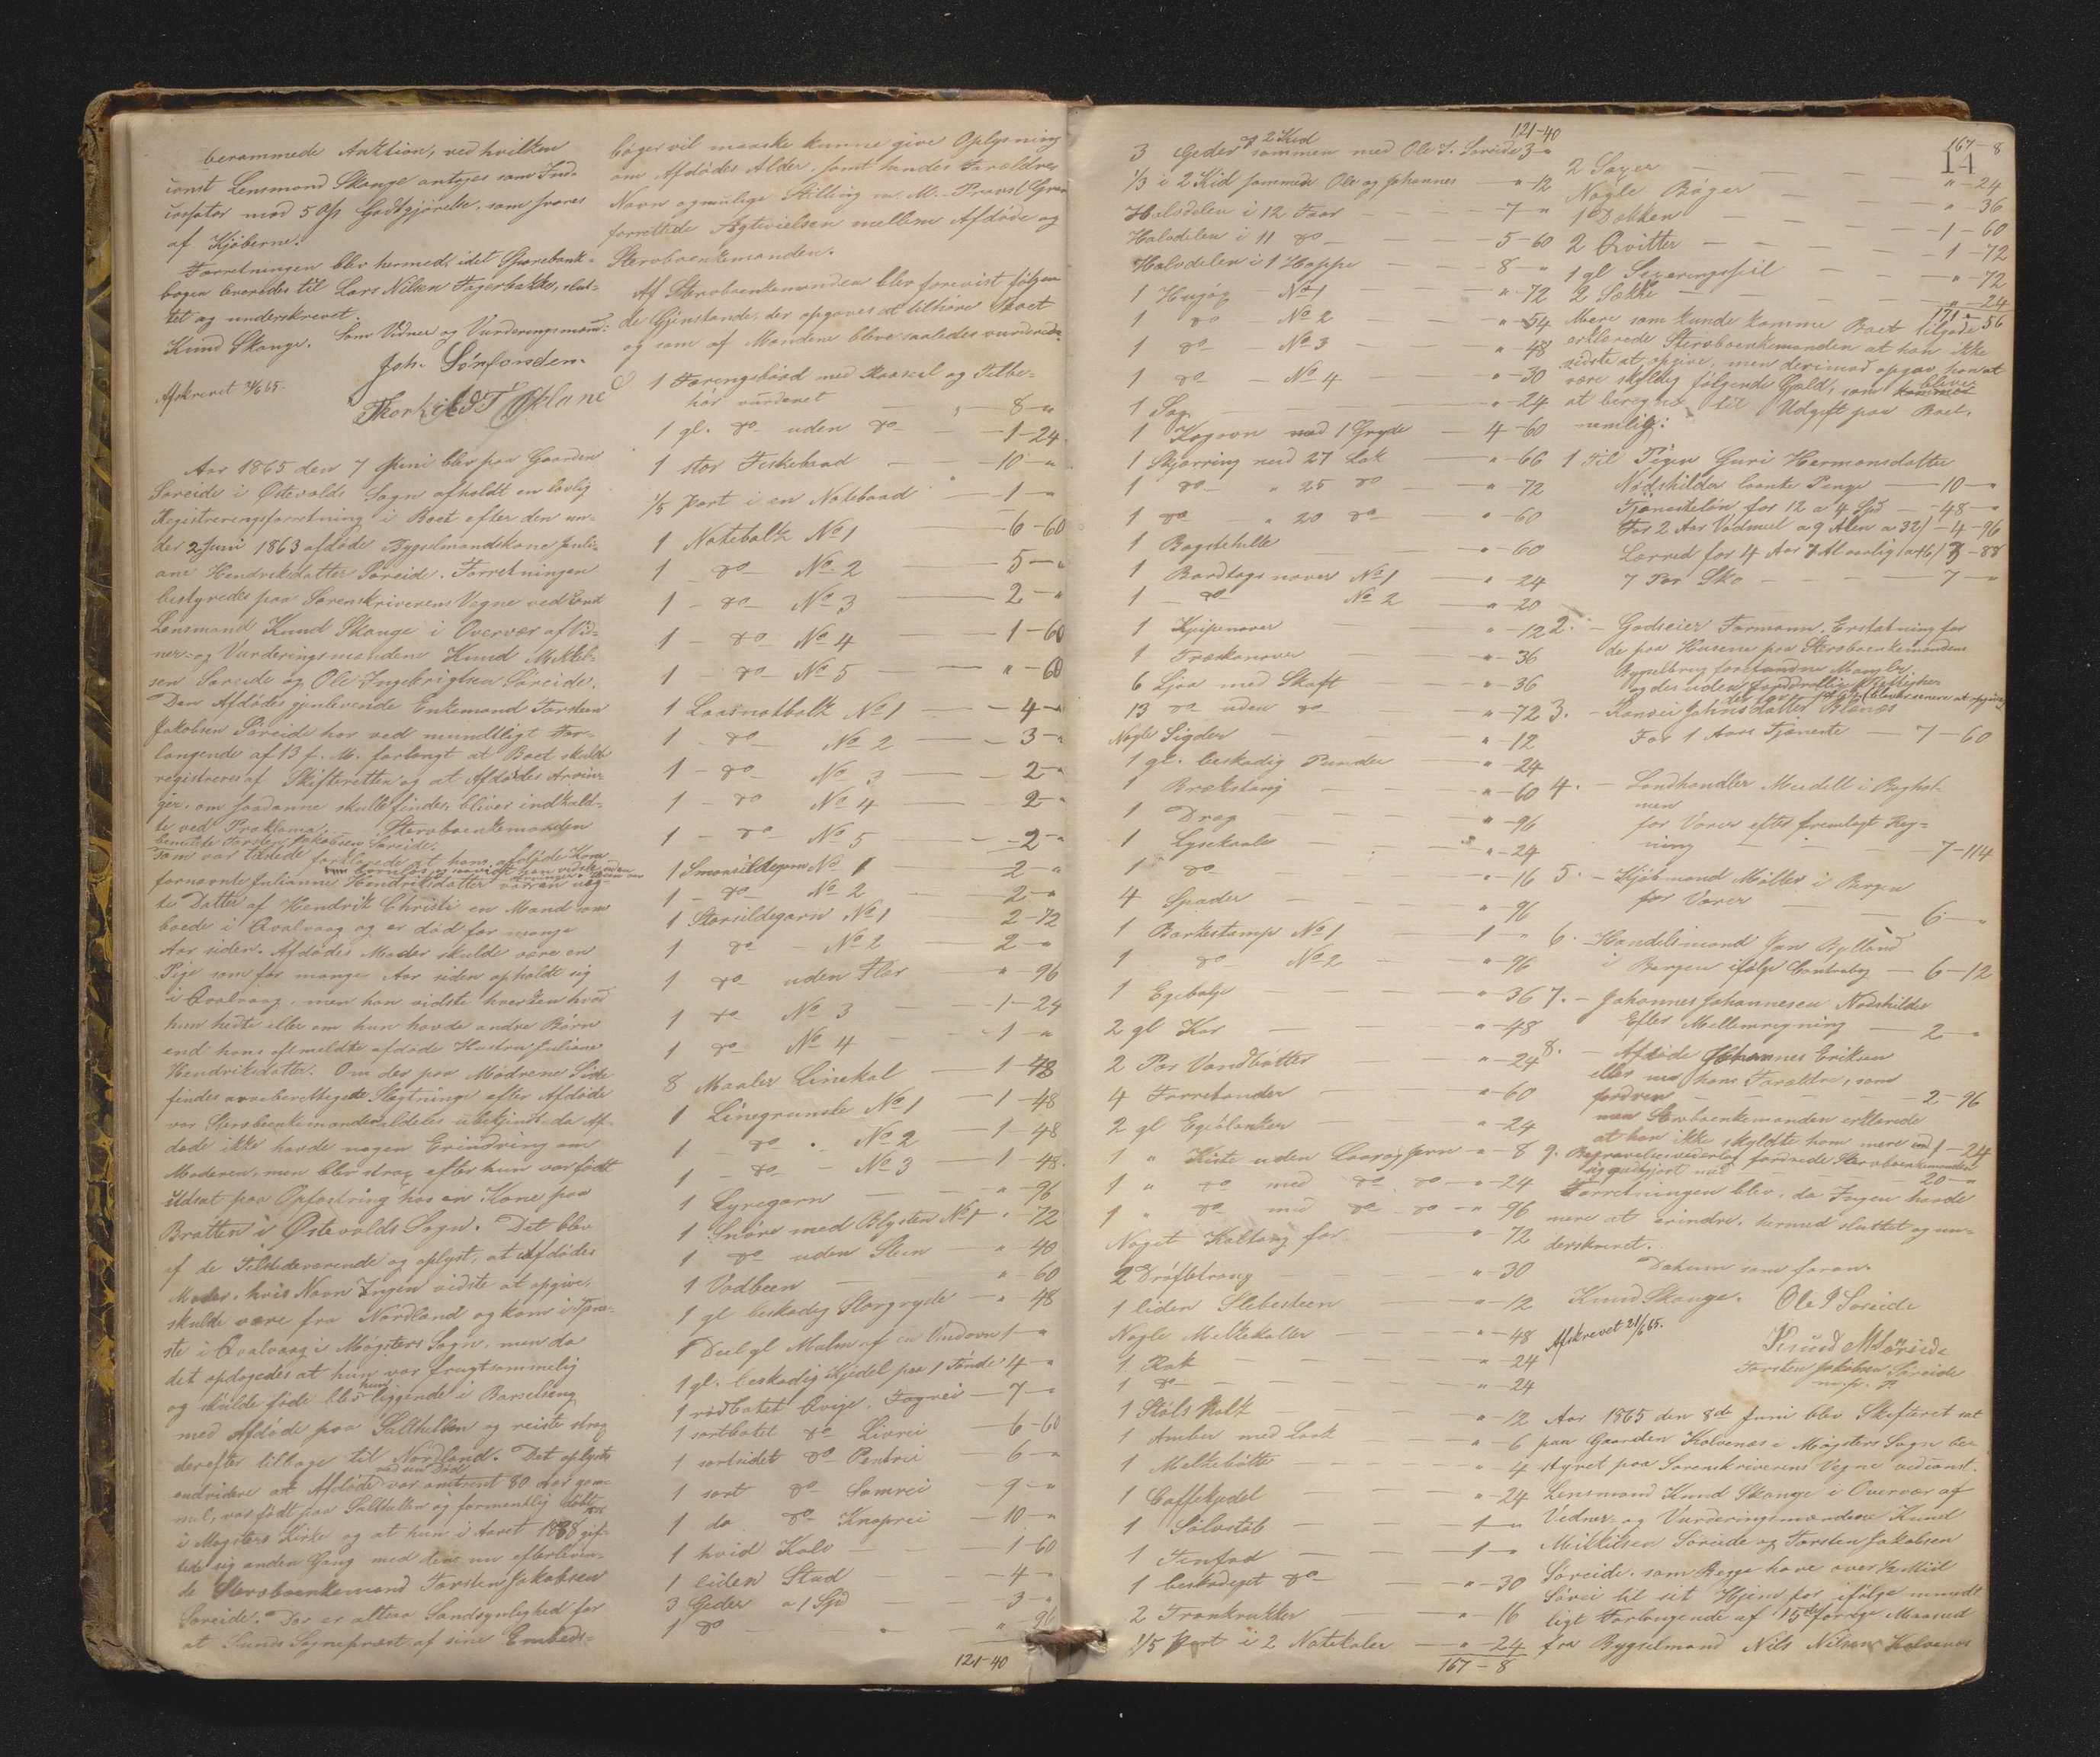 berammede Auktion, ved hvilken
const Lensmand Skauge antoges som Ind-
casator mod 5 % Godtgjörelse, som svares
af Kjöberne.
Forretningen blev hermed, idet Sparebank-
bogen leveredes til Lars Nilsen Tegerbakke, slut-
tet og underskrevet.
Knud Skauge. Som Vidner og Vurderingsmænd:
Joh. Sörfonden.
Afskrevet 21/6 65.
Aar 1865 den 7 Juni blev paa Gaarden
Søreide i Østevolds Sogn afholdt en lovlig
Registreringsforretning i Boet efter den un-
der 2 Juni 1863 afdøde Bygselmandskone Juli-
ane Hendriksdatter Søreide. Forretningen
bestyredes paa Sorenskriverens Vegne ved const
Lensmand Knud Skauge i Overvær af Vid-
ner- og Vurderingsmændene Knud Mikkel-
sen Søreide og Ole Ingebrigtsen Søreide.
Den Afdødes gjenlevende Enkemand Torsten
Jakobsen Søreide har ved mundtligt For-
langende af 13 f. M. forlangt at Boet skulde
registreres af Skifteretten og at Afdødes Arvin-
ger, om saadanne skulle findes, bliver indkald-
te ved Proklama. Stervboenkemanden
bemeldte Torsten Jakobsen Søreide,
som var tilstede forklarede at hans afdøde Kone
fornævnte Julianne Hendriksdatter var en uæg-
te Datter af Hendrik Christi en Mand som
boede i Qvalvaag og er død for mange
Aar siden. Afdødes Moder skulde være en
Pige som for mange Aar siden opholdt sig
i Qvalvaag, men han vidste hverken hvad
hun hedte eller om hun havde andre Børn
end hans ofmeldte afdøde Hustru Juliane
Hendriksdatter. Om der paa Mødrene Side
findes arveberettigede Slægtninge efter Afdøde
var Stervboenkemanden aldeles ubekjendt, da Af-
døde ikke havde nogen Erindring om
Moderen, men blev strax efter hun var født
udsat paa Opfostring hos en Kone paa
Bratten i Østevolds Sogn. Det blev
af de Tilstedeværende og oplyst, at Afdødes
Moder, hvis Navn Ingen vidste at opgive,
skulde være fra Nordland og kom i Tjene-
ste i Qvalvaag i Møgsters Sogn, men da
det opdagedes at hun var frugtsommelig
og skulde føde blev hun liggende i Barselseng
med Afdøde paa Salthellen og reiste strax
derefter tilbage til Nordland. Det oplystes
endvidere at Afdøde ved sin Død var omtrent 80 Aar gam-
mel, var født paa Salthellen og formentlig døbt
i Møgsters Kirke og at hun i Aaret 1838 gif-
tede sig anden Gang med den nu efterleven-
de Stervboenkemand Torsten Jakobsen
Søreide. Der er altsaa Sandsynlighed for
at Sunds Sognepræst af sine Embeds-
bøger vil maaske kunne give Oplysning
om Afdødes Alder, samt hendes Forældres
Navn og mulige Stilling
forrettede Ægtevielsen mellem Afdøde og
Stervboenkemanden.
Af Stervboenkemanden blev forevist følgen-
de Gjenstande, der opgaves at tilhøre Boet
og som af Mændene bleve saaledes vurderede:
1 Færingsbaad med Raaseil og Tilbe-
hør vurderet 8 - "
1 gl. do uden do 1-24
1 stor Fiskebaad 10 - "
1/5 Part i en Notebaad 1 - "
1 Notebolk No 1 6-60
1 - do No 2 5 - "
1 - do No 3 2 - "
1 - do No 4 1-60
1 - do No 5 " - 60
1 Laasnotbolk No 1 4 - "
1 - do No 2 3 - "
1 - do No 3 2 - "
1 - do No 4 2 - "
1 - do No 5 2 - "
1 Smaasildegarn No 1 2 - "
1 - do No 2 2 - "
1 Storsildegarn No 1 2-72
1 do - No 2 2 - "
1 do uden Fler " - 96
1 do No 3 1-24
1 do No 4 1 - "
8 Maaler Linekal 1-48
1 Linegrunsle No 1 1-48
1 - do - No 2 1-48
1 - do - No 3 1-48
1 Lyregarn " - 96
1 Snöre med Blysten No 1 " - 72
1 do uden Steen " - 40
1 Vadbeen " - 60
1 gl beskadig Storgryde " - 48
1 Deel gl Malm af en Vindovn 1 - "
1 gl. beskadig Kjedel paa 1 Tönde 4 - "
1 rödbotet Qvige, Fagrei 7 - "
1 sortbotet do Livrei 6-60
1 sortsidet do Penbrei 6 - "
1 sort do Samrei 9 - "
1 do do Knaprei 10 - "
1 hvid Kalv 1-60
1 liden Stud 4 - "
3 Geder a 1 Spd 3 - "
1 do " - 96
121-40
121-40
3 Geder & 2 Kid sammen med Ole I. Søreide 3 - "
1/3 i 2 Kid sammen Ole og Johannes " - 12
Halvdelen i 12 Faar 7 - "
Halvdelen i 11 do 5-60
Halvdelen i 1 Hoppe 8 - "
1 Hugöx No 1 " - 72
1 do No 2 " - 54
1 do - No 3 " - 48
1 do - No 4 " - 30
1 Sag " - 24
1 Kogovn med 1 Gryde 4-60
1 Skjærring med 27 Lok " - 66
1 do " 25 do " - 72
1 do " 20 do " - 60
1 Bagstehelle " - 60
1 Bordtagsnaver No 1 " - 24
1 - do No 2 " - 20
1 Kjipenaver " - 12
1 Træskonaver " - 36
6 Ljaa med Skaft " - 36
13 do uden do " - 72
Nogle Sigder " - 12
1 gl. beskadig Punder " - 24
1 Brækstang " - 60
1 Drag " - 96
1 Lysekaale " - 24
1 do " - 16
4 Spader " - 96
1 Barkestamp No 1 1 - "
1 do No 2 " - 96
1 Egebalje " - 36
2 gl Kar " - 48
2 Par Vandbøtter " - 24
4 Tørretønder " - 60
2 gl Egeölanker " - 24
1 " Kiste uden Laas og Jern " - 8
1 " do med do do " - 24
1 " do med do do " - 96
Noget Kaltoug for " - 72
2 Dröftetroug " - 30
1 liden Slebesteen " - 12
Nogle Melkekoller " - 48
1 Rok " - 24
1 do " - 24
1 Støls Holk " - 12
1 Amber med Laak " - 6
1 Melkebøtte " - 4
1 Caffekjedel " - 24
1 Sølvstøb 1 - "
1 Tinfad 1 - "
1 beskadeget do " - 30
2 Trankrukker " - 16
1/5 Part i 2 Notekaler " - 24
167-8
167-8
14
2 Sager " - 24
Nogle Bøger " - 36
1 Dækken 1-60
2 Qvitter 1-72
1 gl Segeringsseil " - 72
2 Sække " - 24
171 - 56
Mere som kunde komme Boet tilgode
erklærede Stervboenkemanden at han ikke
vidste at opgive, men derimod opgav han at
være skyldig følgende Gjæld, som bliver
at beregne til Udgift paa Boet,
nemlig:
1 Til Pigen Guri Hermansdatter
Nødskilder laante Penge 10 - "
Tjenesteløn for 12 a 4 Spd 48 - "
For 2 Aar Vadmel a 9 Alen a 32 / 4-96
Lærred for 14 Aar 7 Al aarlig 88
7 Par Sko 7 - "
2. - Godseier Formann, Erstatning for
de paa Husene paa Stervboenkemandens
Bygselbrug forefundne Mangler
3. - Ranvei Johnsdatter Blænæs
For 1 Aars Tjeneste 7-60
4. - Landhandler Meidell i Baghol-
men
for Varer efter fremlagt Reg-
ning 7-114
5. - Kjøbmand Møller i Bergen
for Varer 6 - "
6. Handelsmand Jan Bylland
i Bergen ifølge Contrabog 6-12
7. - Johannes Johannesen Nødskilder
Efter Mellemregning 2 - "
8. - Afdøde Johannes Eriksen
eller nu hans Forældre, som
fordrer 2-96
men Stervboenkemanden erklærede
at han ikke skyldte ham mere end 1-24
9. Begravelsesvederlag fordrede Stervboenkemanden
sig godtgjort med 20 - "
Forretningen blev, da Ingen havde
mere at erindre, hermed sluttet og un-
derskrevet.
Datum som foran.
Knud Skauge. Ole I Søreide
Afskrevet 21/6 65.
Knud M Søreide
Torsten Jakobsen Søreide
m. p. P
Aar 1865 den 8de Juni blev Skifteret sat
paa Gaarden Kalvenæs i Møgsters Sogn be-
styret paa Sorenskriverens Vegne ved const.
Lensmand Knud Skauge i Overvær af
Vidner- og Vurderingsmændene Knud
Mikkelsen Søreide og Torsten Jakobsen
Søreide, som begge have over ½ Miil
Søvei til sit Hjem for ifølge mundt-
ligt Forlangende af 15de forrige Maaned
fra Bygselmand Nils Nilsen Kalvenæs